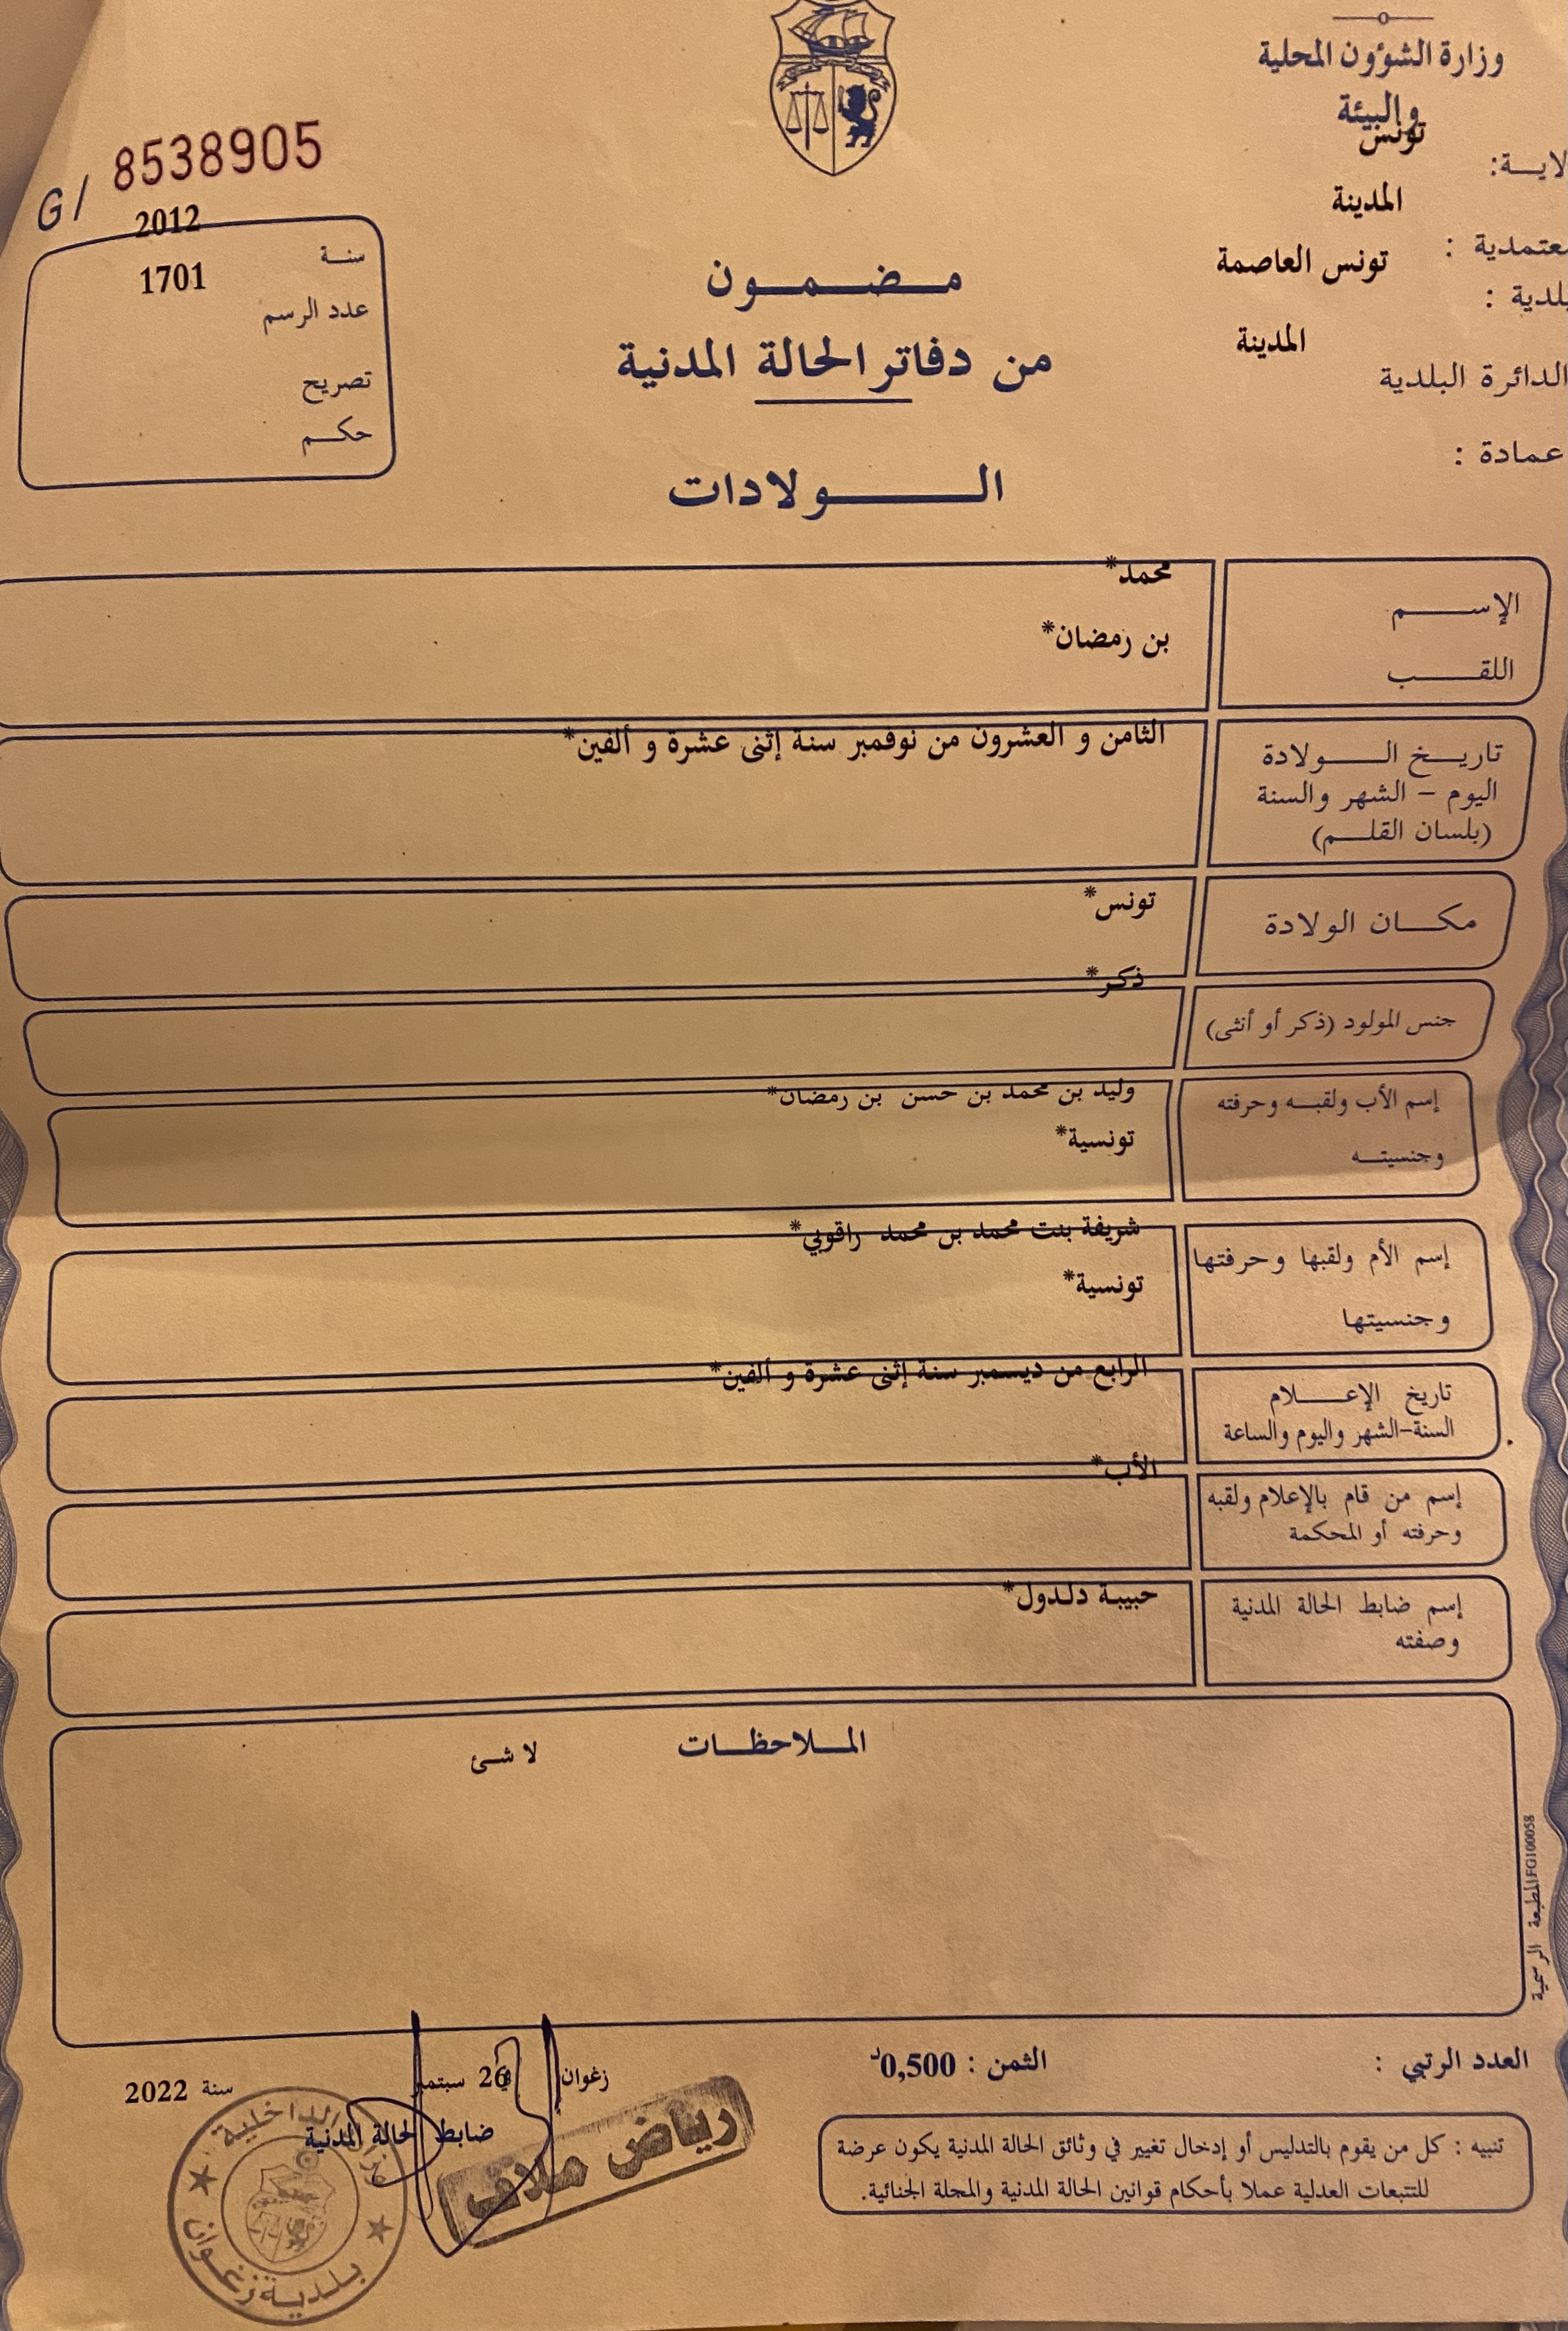 وزارة الشؤون المحلية
والبيئة
تونس
لايـــة:
المدينة
معتمدية :
تونس العاصمة
بلدية :
المدينة
الدائرة البلدية
عمادة :
G/ 8538905
2012
سنــة
1701
عدد الرسم
تصريح
حكــم
مــضــمــون
من دفاتر الحالة المدنية
الــــولادات
الإســــم
محمد*
اللقــــب
بن رمضان*
تاريــخ الــــولادة
اليوم – الشهر والسنة
(بلسان القلــم)
الثامن و العشرون من نوفمبر سنة إثنى عشرة و ألفين*
مكــان الولادة
تونس*
جنس المولود (ذكر أو أنثى)
ذكر*
إسم الأب ولقبــه وحرفته
وجنسيتــه
وليد بن محمد بن حسن بن رمضان*
تونسية*
إسم الأم ولقبها وحرفتها
وجنسيتها
شريفة بنت محمد بن محمد راقوبي*
تونسية*
تاريخ الإعــــلام
السنة-الشهر واليوم والساعة
الرابع من ديسمبر سنة إثنى عشرة و ألفين*
إسم من قام بالإعلام ولقبه
وحرفته أو المحكمة
الأب*
إسم ضابط الحالة المدنية
وصفته
حبيبة دلدول*
المــلاحظــات
لا شئ
المطبعة الرسمية FG100058
العدد الرتبي :
الثمن : 0,500د
زغوان
26 سبتمبر
سنة 2022
ضابط الحالة المدنية
رياض ملاف
الداخلية
بلدية زغوان
تنبيه : كل من يقوم بالتدليس أو إدخال تغيير في وثائق الحالة المدنية يكون عرضة
للتتبعات العدلية عملا بأحكام قوانين الحالة المدنية والمجلة الجنائية.